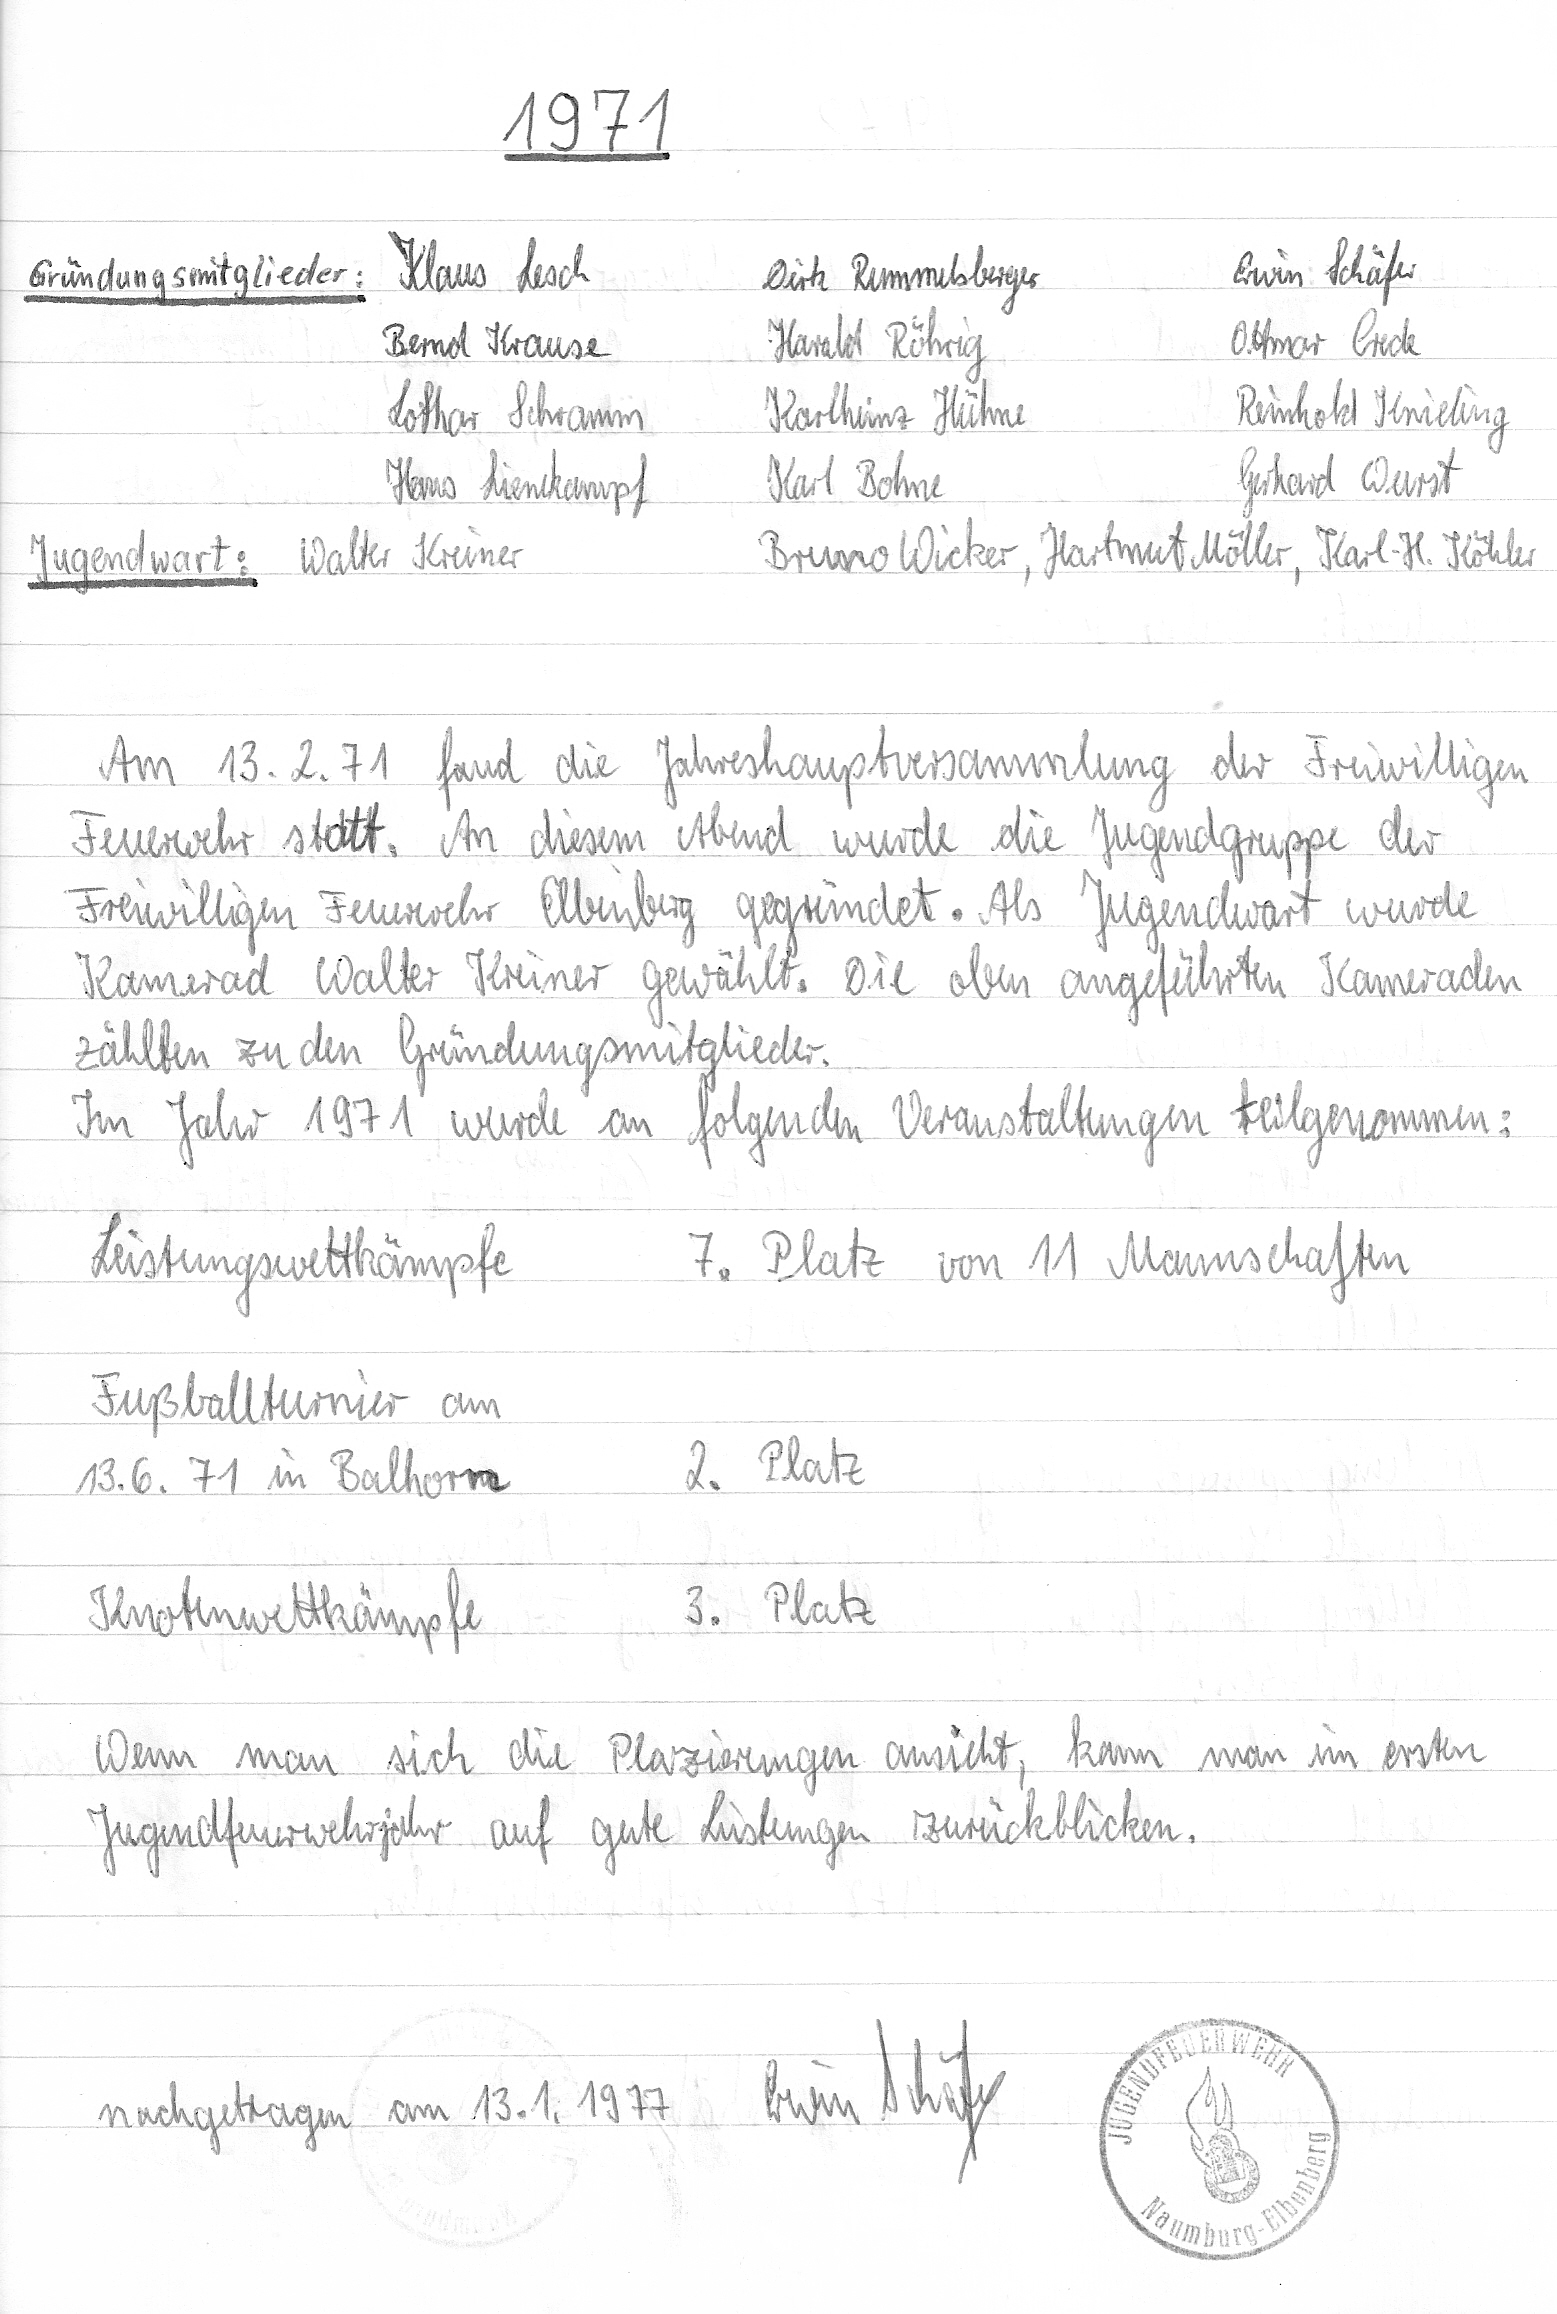 1971
Gründungsmitglieder: Klaus Lesch Dirk Rummelsberger Erwin Schäfer
Bernd Krause Harald Röhrig Ottmar Crede
Lothar Schramm Karlheinz Hühne Reinhold Knieling
Hans Lienekampf Karl Bohne Gerhard Wurst
Jugendwart: Walter Kreiner Bruno Wicker, Hartmut Möller, Karl-H. Köhler
Am 13.2.71 fand die Jahreshauptversammlung der Freiwilligen
Feuerwehr statt. An diesem Abend wurde die Jugendgruppe der
Freiwilligen Feuerwehr Elbenberg gegründet. Als Jugendwart wurde
Kamerad Walter Kreiner gewählt. Die oben angeführten Kameraden
zählten zu den Gründungsmitglieder.
Im Jahr 1971 wurde an folgenden Veranstaltungen teilgenommen:
Leistungswettkämpfe 7. Platz von 11 Mannschaften
Fußballturnier am
13.6.71 in Balhorn 2. Platz
Knotenwettkämpfe 3. Platz
Wenn man sich die Plazierungen ansieht, kann man im ersten
Jugendfeuerwehrjahr auf gute Leistungen zurückblicken.
nachgetragen am 13.1.1977 Erwin Schäfer
JUGENDFEUERWEHR
Naumburg-Elbenberg